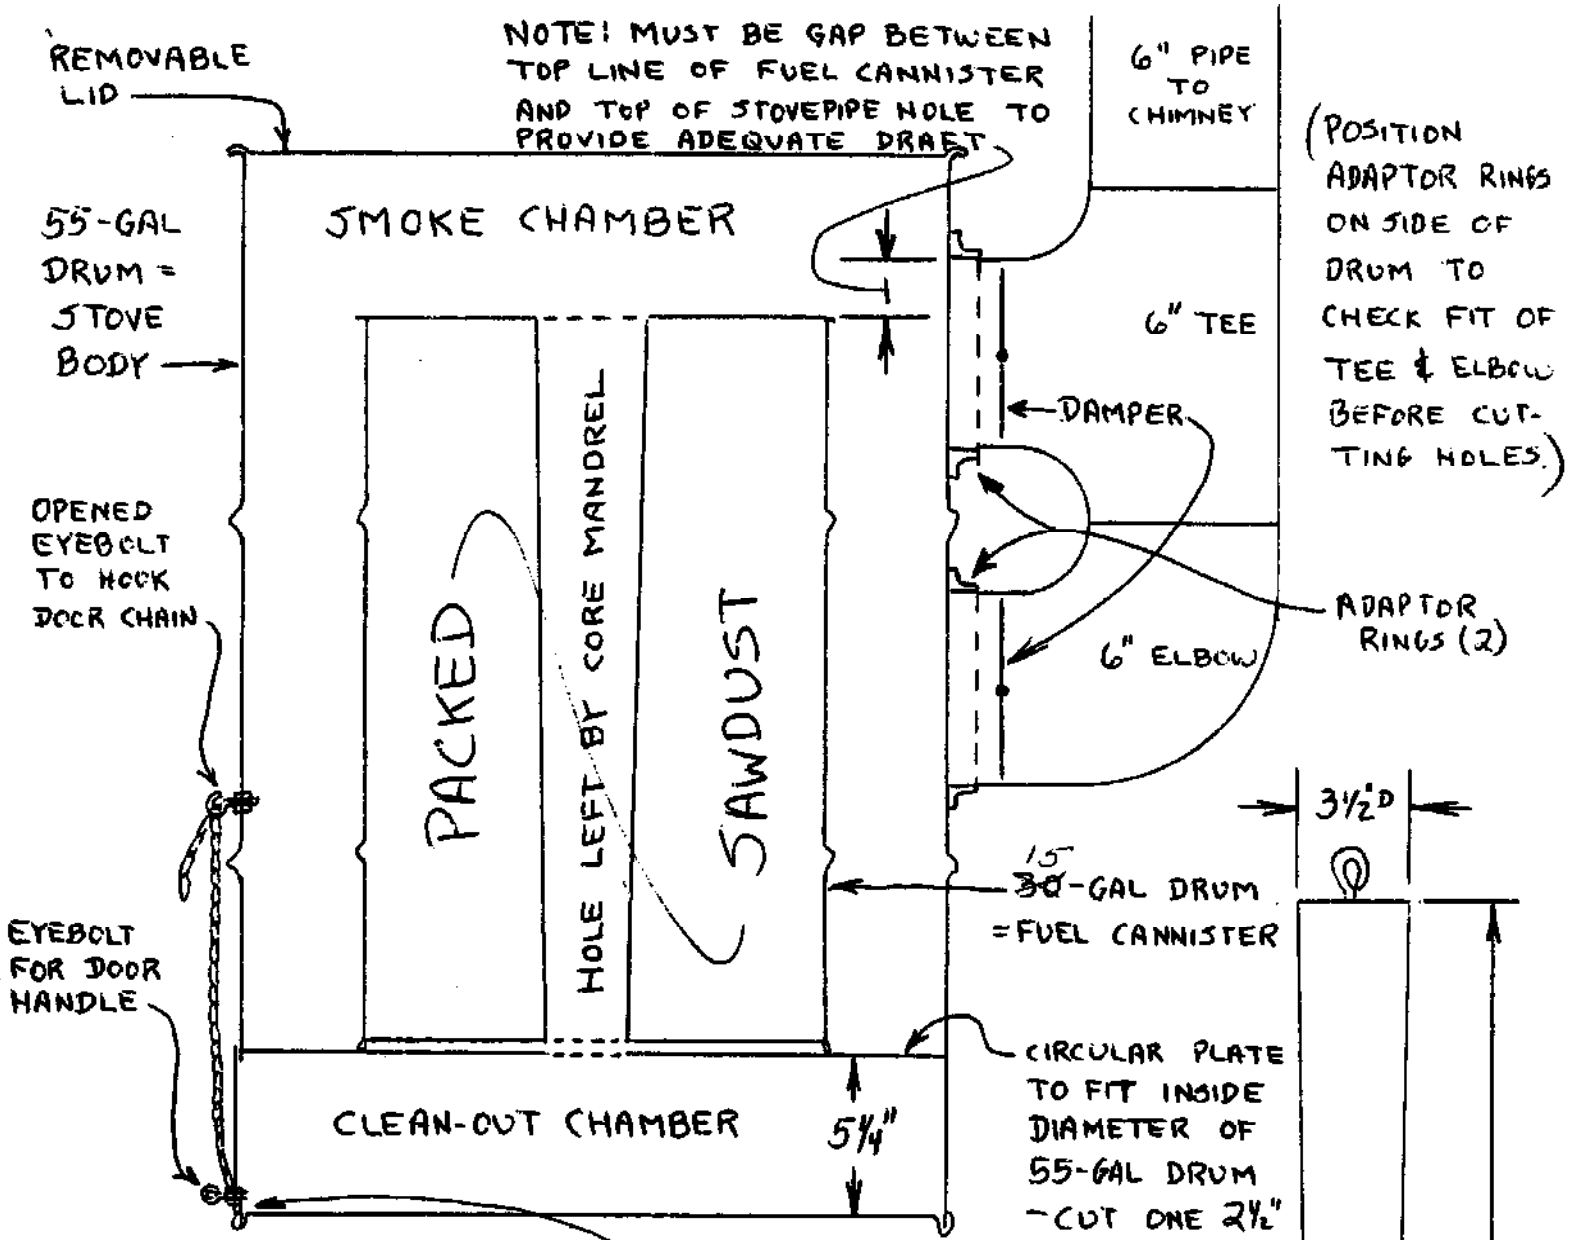 REMOVABLE
LID
NOTE! MUST BE GAP BETWEEN
TOP LINE OF FUEL CANNISTER
AND TOP OF STOVEPIPE HOLE TO
PROVIDE ADEQUATE DRAFT
6" PIPE
TO
CHIMNEY
(POSITION
ADAPTOR RINGS
ON SIDE OF
DRUM TO
CHECK FIT OF
TEE & ELBOW
BEFORE CUT-
TING HOLES.)
55-GAL
DRUM =
STOVE
BODY
SMOKE CHAMBER
6" TEE
DAMPER
OPENED
EYEBOLT
TO HOOK
DOOR CHAIN
PACKED
HOLE LEFT BY CORE MANDREL
SAWDUST
ADAPTOR
RINGS (2)
6" ELBOW
3 1/2" D
15
30-GAL DRUM
= FUEL CANNISTER
EYEBOLT
FOR DOOR
HANDLE
CLEAN-OUT CHAMBER
5 1/4"
CIRCULAR PLATE
TO FIT INSIDE
DIAMETER OF
55-GAL DRUM
- CUT ONE 2 1/2"